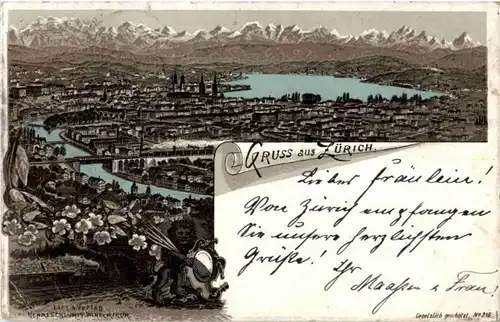 GRUSS aus ZÜRICH.
Liebes Fräulein!
Von Zürich empfangen
Sie unsere herzlichsten
Grüße! Ihr
Maassen u Frau
Lith. & Verlag
HENRI SCHLUMPF, WINTERTHUR
Gesetzlich geschützt. No 316